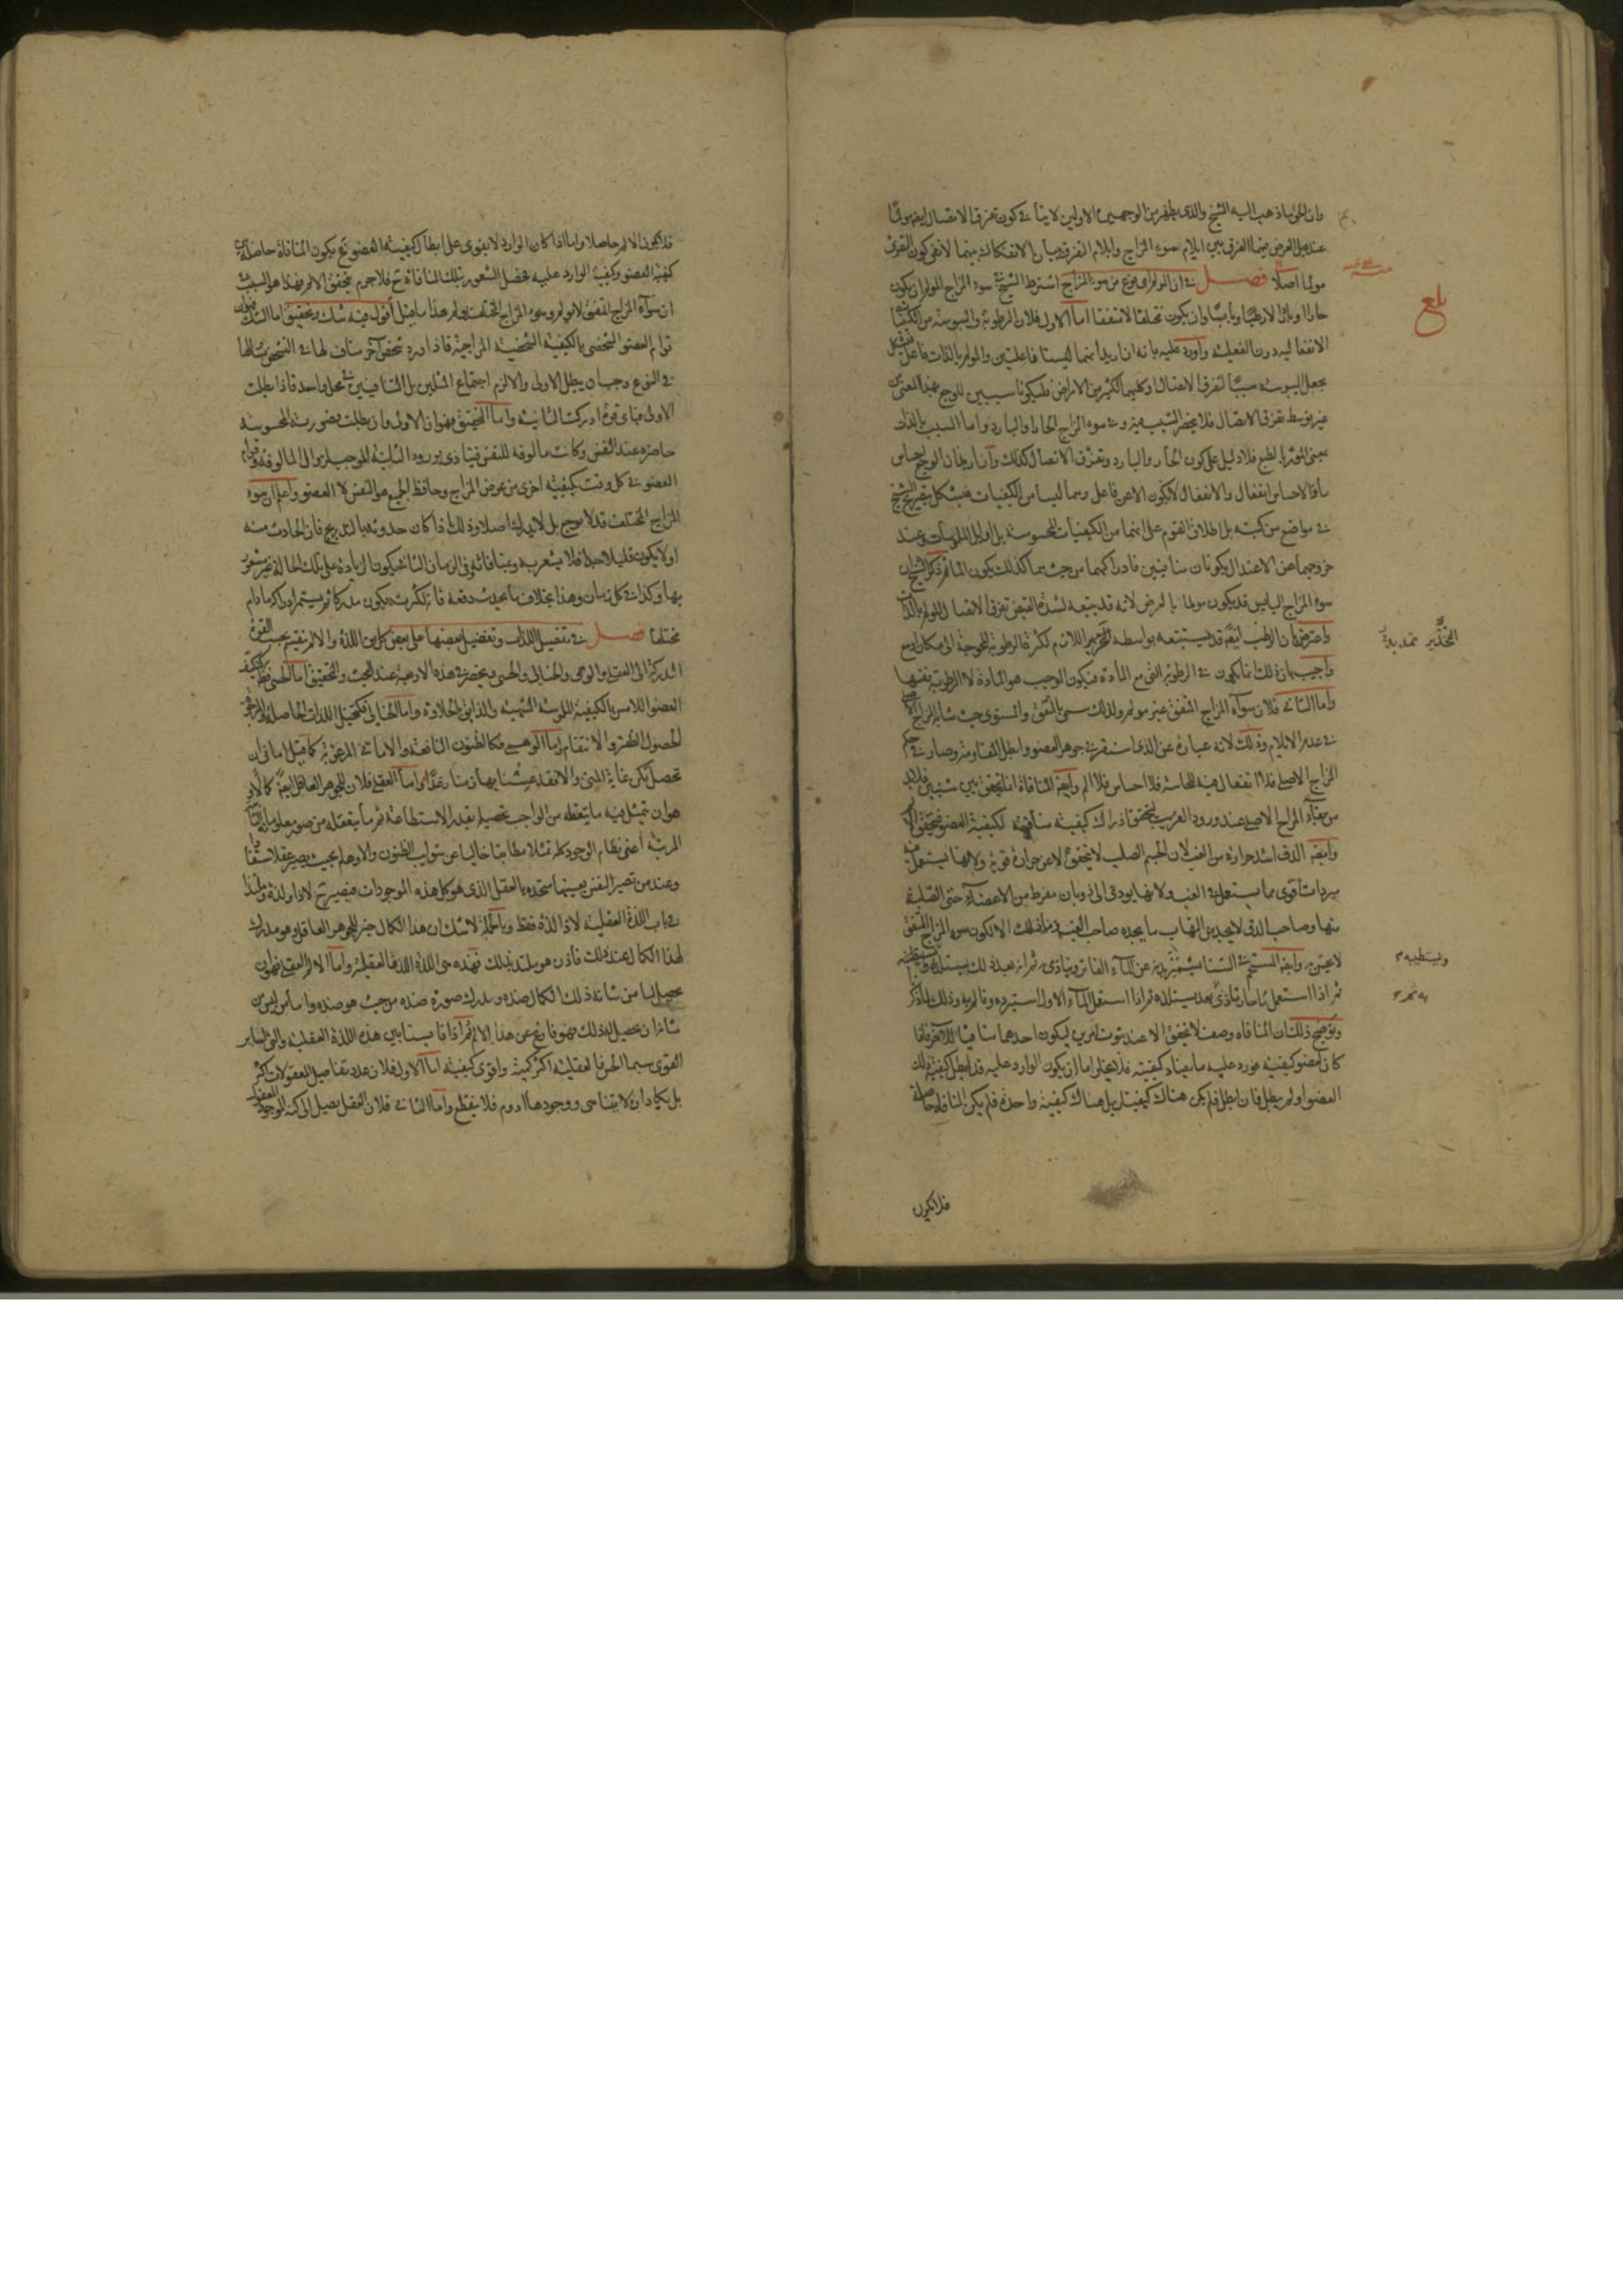 وان الحق ما ذهب اليه الشيخ والذى يظهر من الوجهين الاولين لا ينافى كون تفرق الاتصال ايضا مولما
عندهم بل الغرض منهما الفرق بين ايلام سوء المزاج وايلام التفرق ببيان الانفكاك بينهما لا نفى كون التفرق
مولما اصلا فصل فى ان المولم اى نوع من سوء المزاج اشترط الشيخ فى سوء المزاج المولم ان يكون
حارا او باردا لا رطبا ويابسا وان يكون مختلفا لا متفقا اما الاول فلان الرطوبة واليبوسة من الكيفيات
الانفعالية دون الفعلية واورد عليه بانه ان اريد انهما ليستا فاعلتين والمولم بالذات فاعل
يجعل اليبوسة سببا لتفرق الاتصال وكليهما لكثير من الامراض فليكونا سببين للوجع بهذا المعنى من
غير توسط تفرق الاتصال فلا ينحصر السبب فيه وفى سوء المزاج الحار او البارد واما السبب بالذات
بمعنى المؤثر بالطبع فلا دليل على كون الحار والبارد وتفرق الاتصال كذلك وان اريد ان الوجع احساس
ما والاحساس انفعال والانفعال لا يكون الا عن فاعل وهما ليسا من الكيفيات فيشكل بتصريح الشيخ
فى مواضع من كتبه بل اطلاق القوم على انهما من الكيفيات المحسوسة بل اوايل الملموسات وعند
خروجهما عن الاعتدال يكونان منافيين فادراكهما من حيث هما كذلك يكون الما ثم ذكر الشيخ ان
سوء المزاج اليابس قد يكون مولما بالعرض لانه قد يتبعه لشدة القبض تفرق الاتصال المولم بالذات
واعترض بان الرطب ايضا قد يستتبعه بواسطه التمديد اللازم لكثرة الرطوبة المحوجة الى مكان اوسع
واجيب بان ذلك انما يكون فى الرطوبة التى مع المادة فيكون الموجب هو المادة لا الرطوبة نفسها
واما الثانى فلان سوء المزاج المتفق غير مولم ولذلك سمى بالمتفق والمستوى حيث شابه المزاج الاصلى
فى عدم الايلام وذلك لانه عبارة عن الذى استقر فى جوهر العضو وابطل المقاومة وصار فى حكم
المزاج الاصلى فلا انفعال فيه للحاسة فلا احساس فلا الم وايضا المنافاة انما يتحقق بين شيئين فلا بد
من بقاء المزاج الاصلى عند ورود الغريب ليتحقق ادراك كيفية منافية لكيفية العضو فيتحقق الالم
وايضا الدق اشد حرارة من الغب لان الجسم الصلب لا يتسخن الا عن حرارة قوية ولانها يستعمل فيه
مبردات اقوى مما يستعمل فى الغب ولانها يودى الى ذوبان مفرط من الاعضاء حتى الصلبة
منها وصاحب الدق لا يجد من التهاب ما يجده صاحب الغب وما ذلك الا لكون سوء المزاج المتفق
لا يحس به وايضا المستحم فى الشتا يشمئز بدنه عن الماء الفاتر ويتاذى به ثم انه بعد ذلك يستلذه
ثم اذا استعمل ماء حارا تاذى به ثم بعد يستلذه ثم اذا استعمل الماء الاول استبرده وتالم به وذلك لما ذكر
وتوضيح ذلك ان المنافاه وصف لا يتحقق الا عند ثبوت امرين ليكون احدهما منافيا للآخر فاذا
كان لعضو كيفية فورد عليه ما يضاد كيفيته فلا يخلو اما ان يكون الوارد عليه قد ابطل كيفية ذلك
العضو او لم يبطل فان ابطل فلم يكن هناك كيفيتان بل هناك كيفية واحدة فلم يكن المنافاة حاصلة
فلا يكون
بلغ
ويستطيبه
فلا يكون الالم حاصلا واما اذا كان الوارد لا يقوى على ابطال كيفية العضو فح يكون المنافاة حاصلة بين
كيفية العضو وكيفية الوارد عليه فحصل الشعور بتلك المنافاة ح فلا جرم يتحقق الالم فهذا هو السبب فى
ان سوء المزاج المتفق لا يولم وسوء المزاج المختلف يولم هذا ما قيل اقول فيه شك وتحقيق اما الشك فهو ان
قوام العضو الشخصى بالكيفية الشخصية المزاجية فاذا ورد شخص آخر مناف لها فى الشخص مثالها
فى النوع وجب ان يبطل الاولى والا لزم اجتماع المثلين بل المتنافيين فى محل واحد فاذا بطلت
الاولى فباى قوة ادركت الثانية واما التحقيق فهو ان الاولى وان بطلت فصورتها المحسوسة
حاضرة عند النفس وكانت مالوفة للنفس فيتاذى بورود الثانية الموجب لزوال المالوفة وقوام
العضو فى كل وقت بكيفية اخرى من عرض المزاج وحافظ الجميع هو النفس لا العضو واعلم ان سوء
المزاج المختلف قد لا يوجع بل لا يدرك اصلا وذلك اذا كان حدوثه بالتدريج فان الحادث منه
اولا يكون قليلا جدا فلا يشعر به وبمنافاته وفى الزمان الثانى يكون الزيادة على تلك الحالة غير مشعور
بها وكذا فى كل زمان وهذا بخلاف ما يحدث دفعة فانه لكثرته يكون مدركا ثم يستمر ادراكه ما دام
مختلفا فصل فى تفصيل اللذات وتفضيل بعضها على بعض كل من اللذة والالم ينقسم بحسب القوة
المدركة الى العقلى والوهمى والخيالى والحسى وينحصر فى هذه الاربعة عند البحث والتحقيق اما الحسى فكتكيف
العضو اللامس بالكيفية الملموسة الشهية والذايق بالحلاوة واما الخيالى فكتخيل اللذات الحاصلة والمرجوة
الحصول الظفر والانتقام واما الوهمى فكالظنون النافعة والامانى المرغوبة كما قيل امانى ان
تحصل تكن غاية المنى والا فقد عشنا بها زمنا رغدا واما العقلى فلان للجوهر العاقل ايضا كمالا و
هو ان يتمثل فيه ما يتعقله من الواجب تحصيله بقدر الاستطاعة ثم ما يتعقله من صور معلوماته
المرتبة اعنى نظام الوجود كله تمثلا مطابقا خاليا عن شوايب الظنون والاوهام بحيث يصير عقلا مستفادا
وعند من تصير النفس بعينها متحدة بالعقل الذى هو كل هذه الموجودات فيصير ح لاذا ولذة وملتذا
فى باب اللذة العقلية لاذا لذة فقط وبالجملة لا شك ان هذا الكمال خير للجوهر العاقل وهو مدرك
لهذا الكمال عند ذلك فاذن هو ملتذ بذلك فهذه هى اللذة العقلية واما الالم العقلى فهو ان
يحصل لما من شانه ذلك الكمال ضده ويدرك صورة ضده من حيث هو ضده واما من ليس من
شانه ان يحصل له ذلك فهو فارغ عن هذا الالم ثم اذا قايسنا بين هذه اللذة العقلية والتى لساير
القوى سيما الحس فالعقلية اكثر كمية واقوى كيفية اما الاول فلان عدد تفاصيل المعقولات اكثر
بل يكاد ان لا يتناهى ووجودها ادوم فلا ينقطع واما الثانى فلان العقل يصل الى كنه الموجود